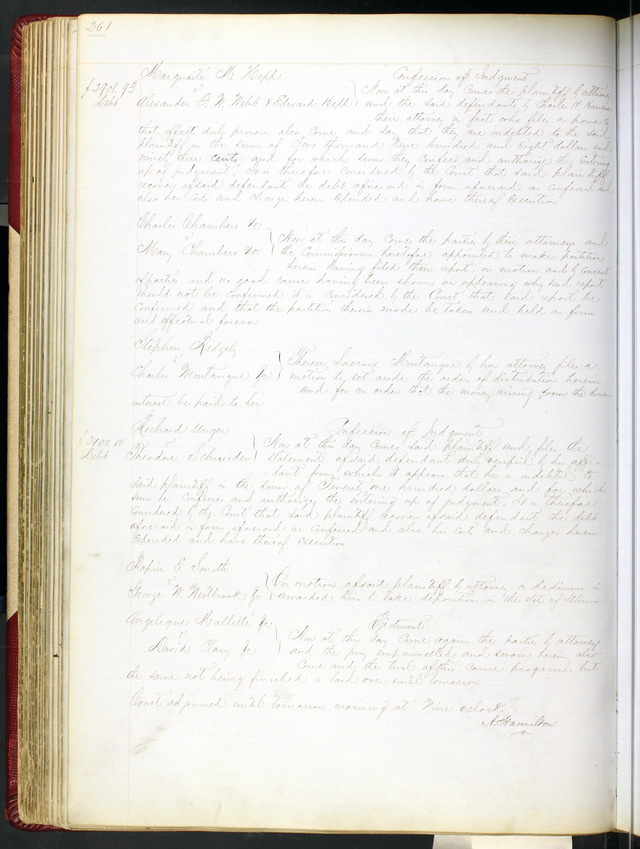 261
Marguaite M. Hepp Confession of Judgment
$2908.93 vs Now at this day Come the plaintiff by attorney
Debt Alexander F. W. Webb & Edward Hepp and the said defendants by Charles H
their attorney in fact who files a power to
that effect duly proven also Come and say that they are indebted to the said
plaintiff in the sum of Two thousand Nine hundred and Eight dollars and
ninety three cents and for which sum they Confess and authorize the Entering
up of judgment. It is therefore Considered by the Court that said plaintiff
recover of said defendants the debt aforesaid in form aforesaid as Confessed and
also her Costs and Charges herein Expended and have thereof Execution
Charles Chambers &c
vs Now at this day Come the parties by their attorneys and
Mary Chambers &c the Commissioners heretofore appointed to make partition
herein having filed their report on motion and by Consent
of parties and no good cause having been shown or appearing why said report
should not be Confirmed it is Considered by the Court that said report be
Confirmed and that the partition therein made be taken and held as firm
and effectual forever
Stephen Ridgely
vs Therese Lacroix Montaigne by her attorney files a
Charles Montaigne &c motion to set aside the order of distribution herein
and for an order that the money arising from the
interest be paid to her
Richard Unger Confession of Judgment
$2100.00 vs Now at this day Comes said plaintiff and files the
Debt Theodore Schneider statement of said defendant duly verified by his
dant from which it appears that he is indebted to
said plaintiff in the sum of Twenty one hundred dollars and for which
sum he Confesses and authorizes the entering up of judgment. It is therefore
Considered by the Court that said plaintiff recover of said defendant the debt
aforesaid in form aforesaid as Confessed and also his Costs and charges herein
Expended and have thereof Execution
E Smith
vs On motion of said plaintiff by attorney a dedimus is
George W. Westbrook &c awarded him to take deposition in the State of Illinois
Angelique Mallette &c Ejectment
vs Now at this day Come again the parties by attorneys
David Clary &c and the jury empannelled and sworn herein also
Come and the trial of this cause progressed but
the same not being finished is laid over until tomorrow
Court adjourned until tomorrow morning at Nine oclock.
A. Hamilton